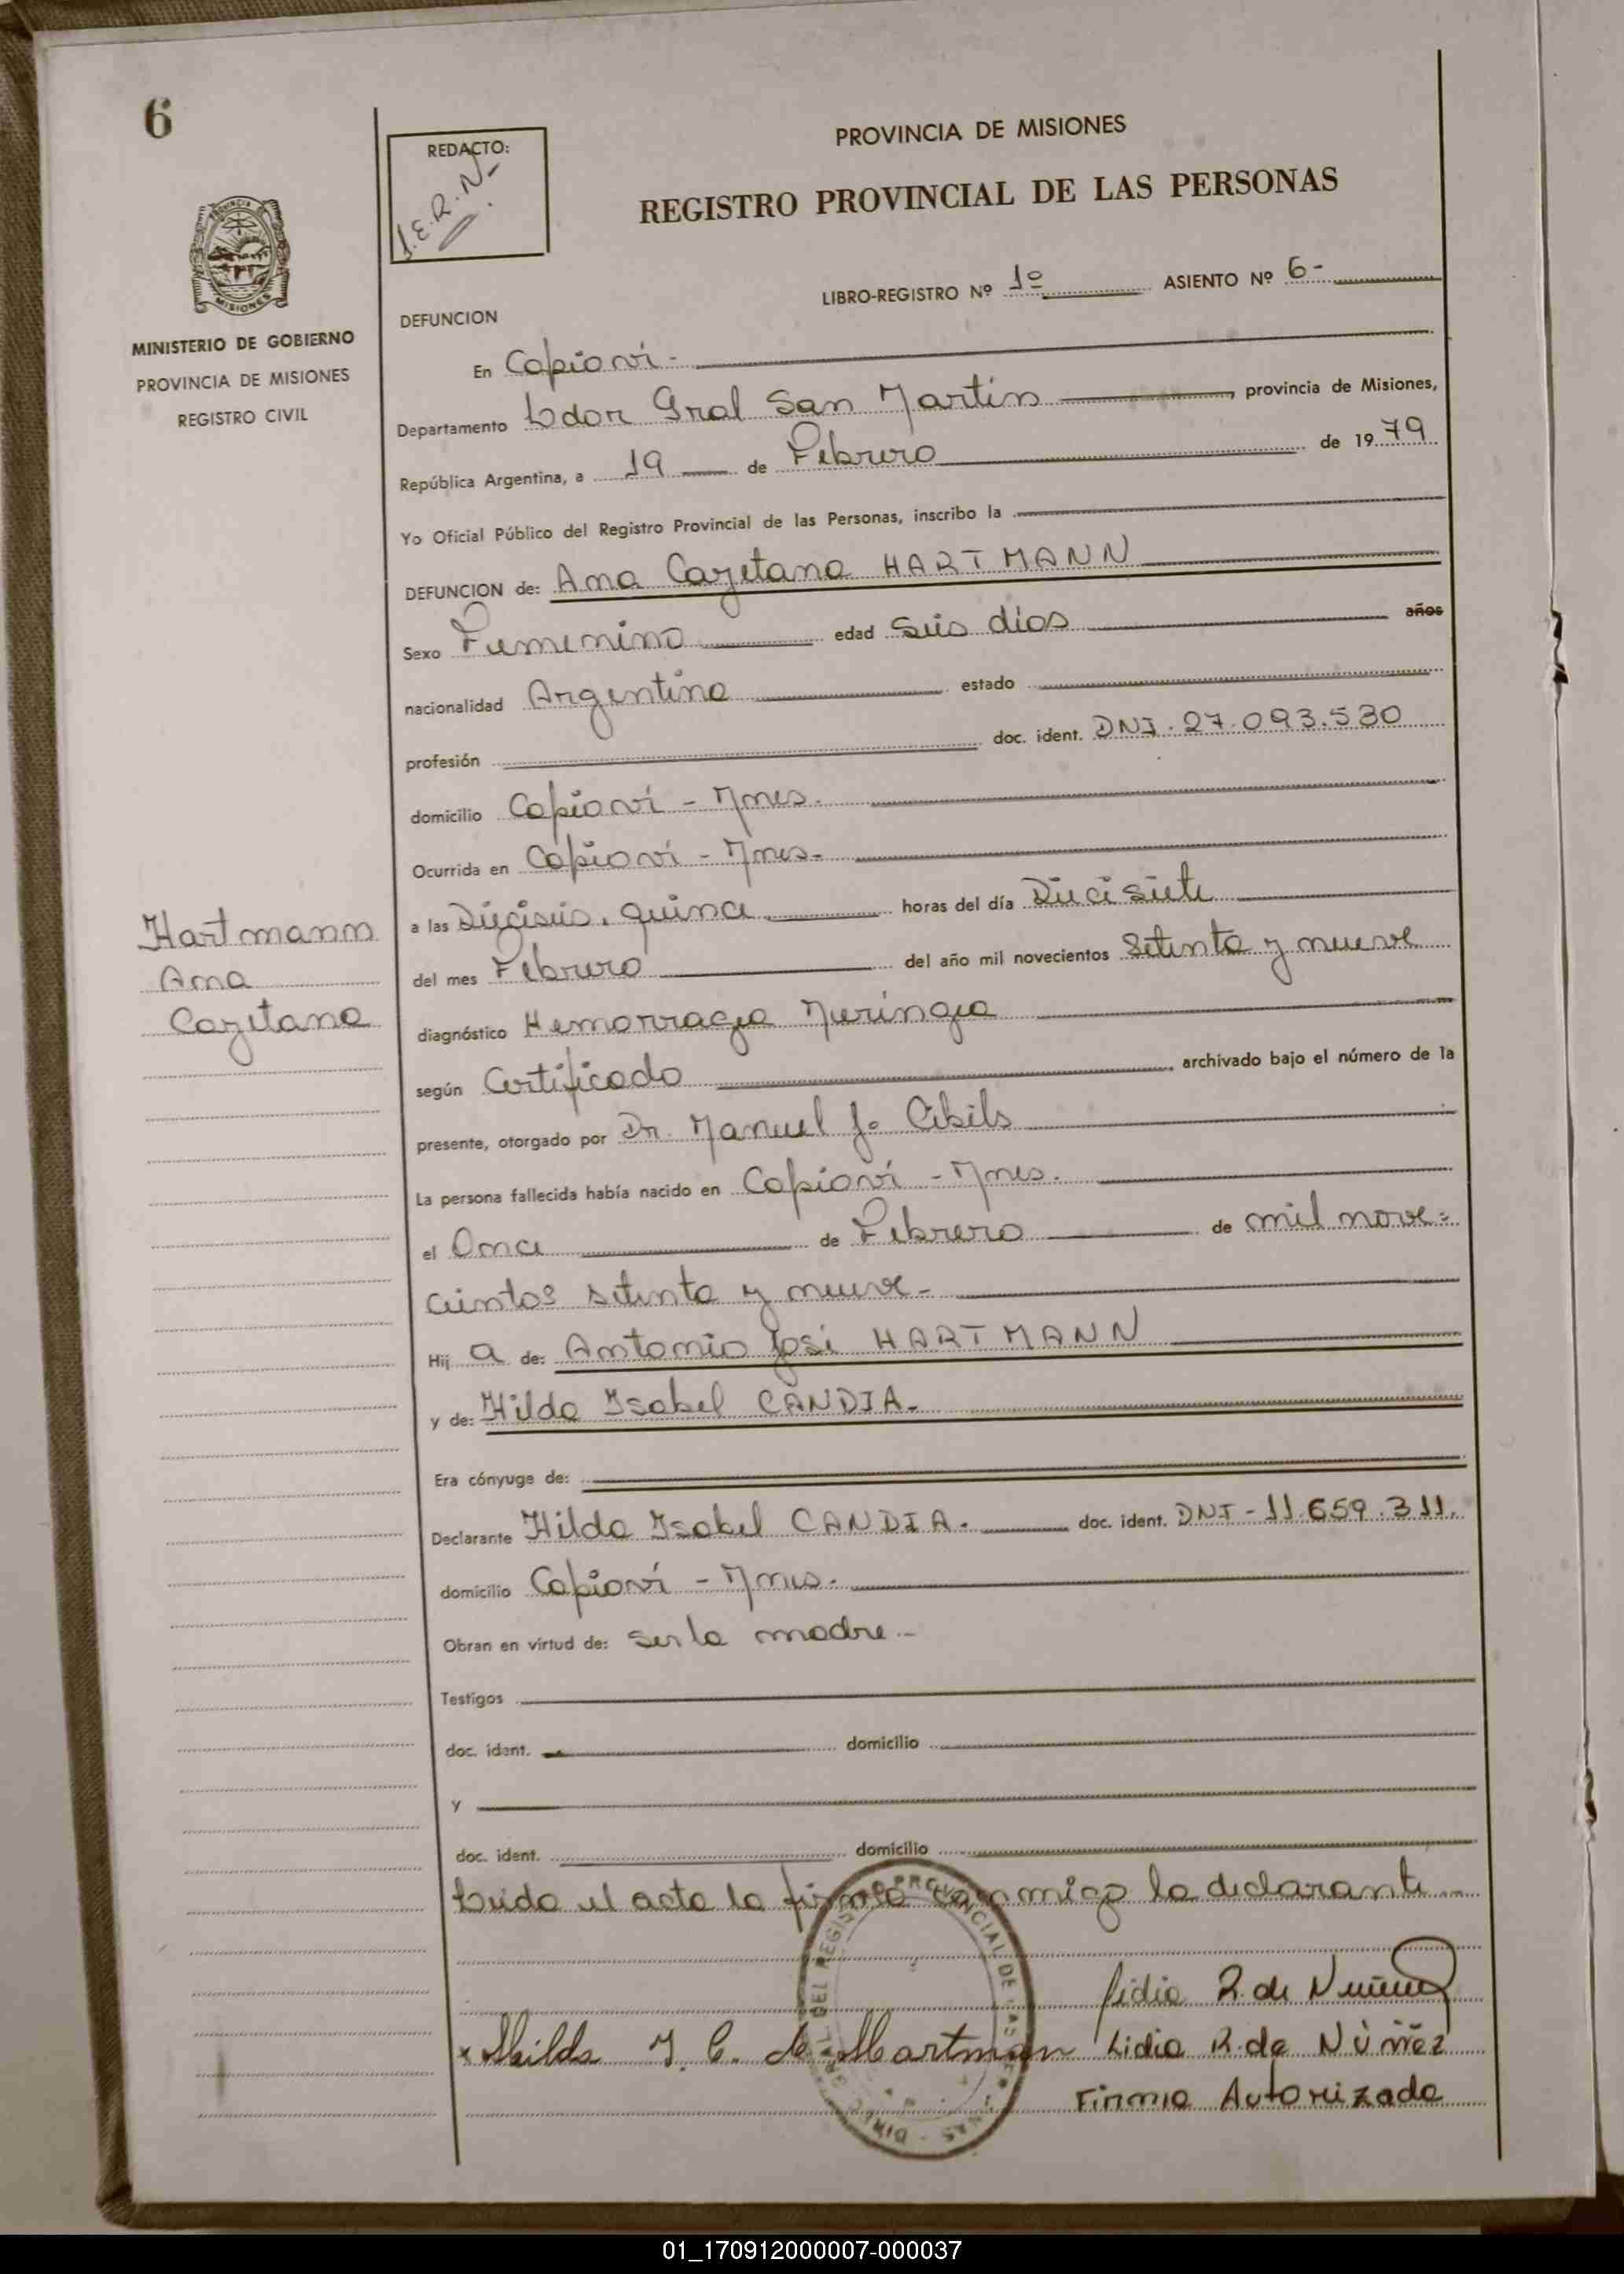 6
PROVINCIA DE MISIONES
REDACTO:
REGISTRO PROVINCIAL DE LAS PERSONAS
J.E.R.N-
LIBRO-REGISTRO Nº 1º ASIENTO Nº 6-
MISIONES
MINISTERIO DE GOBIERNO
PROVINCIA DE MISIONES
REGISTRO CIVIL
DEFUNCION
En Capioví-
Departamento Ldor Gral San Martín, provincia de Misiones,
República Argentina, a 19 de Febrero de 1979
Yo Oficial Público del Registro Provincial de las Personas, inscribo la
DEFUNCION de: Ana Cayetana HARTMANN
Sexo Femenino edad Seis días años
nacionalidad Argentina estado
profesión doc. ident. DNI. 27.093.530
domicilio Capioví - Mnes.
Ocurrida en Capioví - Mnes-
Hartmann
Ana
Cayetana
a las Dieciseis, quince horas del día Diecisiete
del mes Febrero del año mil novecientos Setenta y nueve
diagnóstico Hemorragia Meringea
según Certificado, archivado bajo el número de la
presente, otorgado por Dr. Manuel J. Cibils
La persona fallecida había nacido en Capioví - Mnes.
el Once de Febrero de mil nove=
cientos setenta y nueve-
Hij a de: Antonio José HARTMANN
y de: Hilda Isabel CANDIA-
Era cónyuge de:
Declarante Hilda Isabel CANDIA. doc. ident. DNI-11.659.311.
domicilio Capioví - Mnes.
Obran en virtud de: ser la madre-
Testigos
doc. ident. domicilio
y
doc. ident. domicilio
Leida el acta la firma conmigo la declarante-
Lidia R. de Nuñez
x Hilda I. C. de Hartman Lidia R. de Núñez
Firma Autorizada
01_170912000007-000037